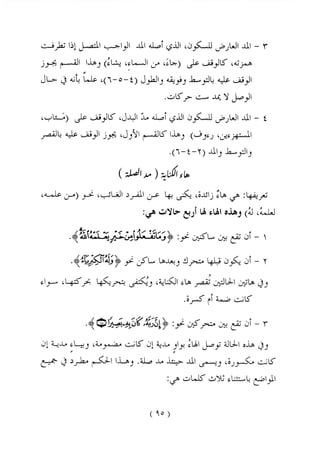 ٣ – المد العارض للسكون، الذي أصله المد الواجب المتصل إذا تطرفت
همزته، كالوقف على (جاء، من السماء، يشاء) وهذا القسم يجوز
الوقف عليه بالتوسط وفويقه والطول (٤-٥-٦)، علماً بأنه في حال
الوصل لا يمد ست حركات.
٤ – المد العارض للسكون، الذي أصله مدّ البدل، كالوقف على (متـــاب،
المستهزءين، رءوف) وهذا كالقسم الأول، يجوز الوقف عليه بالقصر
والتوسط والمد (٢-٤-٦).
( هاء الكناية ) ( مد الصلة )
تعريفها: هي هاء زائدة، يكنى بها عن المفرد الغائب، نحو (من عمله،
لعمله، له) وهذه الهاء لها أربع حالات هي:
١ – أن تقع بين ساكنين نحو: ﴿وَمَا تَفْعَلُوا مِنْ خَيْرٍ يَعْلَمْهُ اللَّهُ﴾.
٢ – أن يكون قبلها متحرك وبعدها ساكن نحو ﴿وَلَهُ الْكِبْرِيَاءُ﴾.
وفي هاتين الحالتين تُقصر هاء الكناية، ويُكتفى بتحريكها بحركتها، سواء
كانت ضمة أم كسرة.
٣ – أن تقع بين متحركين نحو: ﴿إِنَّ رَبَّهُ كَانَ بِهِ بَصِيرًا ﴾.
وفي هذه الحالة توصل الهاء بواو مدية إن كانت مضمومة، وبياء مدية إن
كانت مكسورة، ويسمى المد حينئذ مد صلة. وهذا الحكم مطرد في جميع
المواضع باستثناء ثلاث كلمات هي:
( ٩٥ )